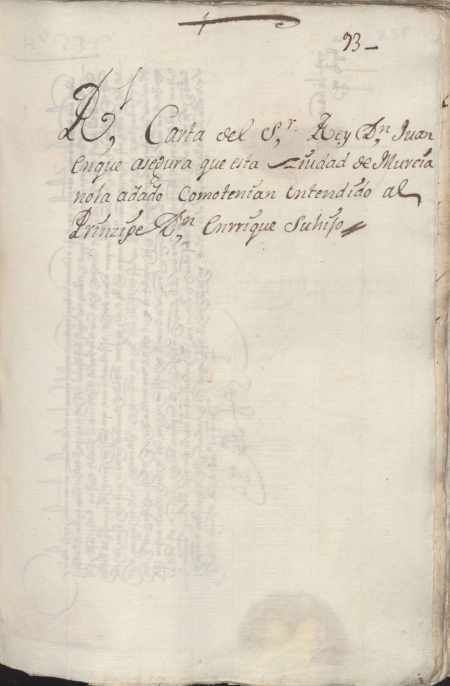 93_
R, Carta del S,r Rey Dn, Juan
Enque asegura que esta Ziudad de Murcia
nola adado Comotenian entendido al
Prinzipe Dn, Enrrique Suhijo